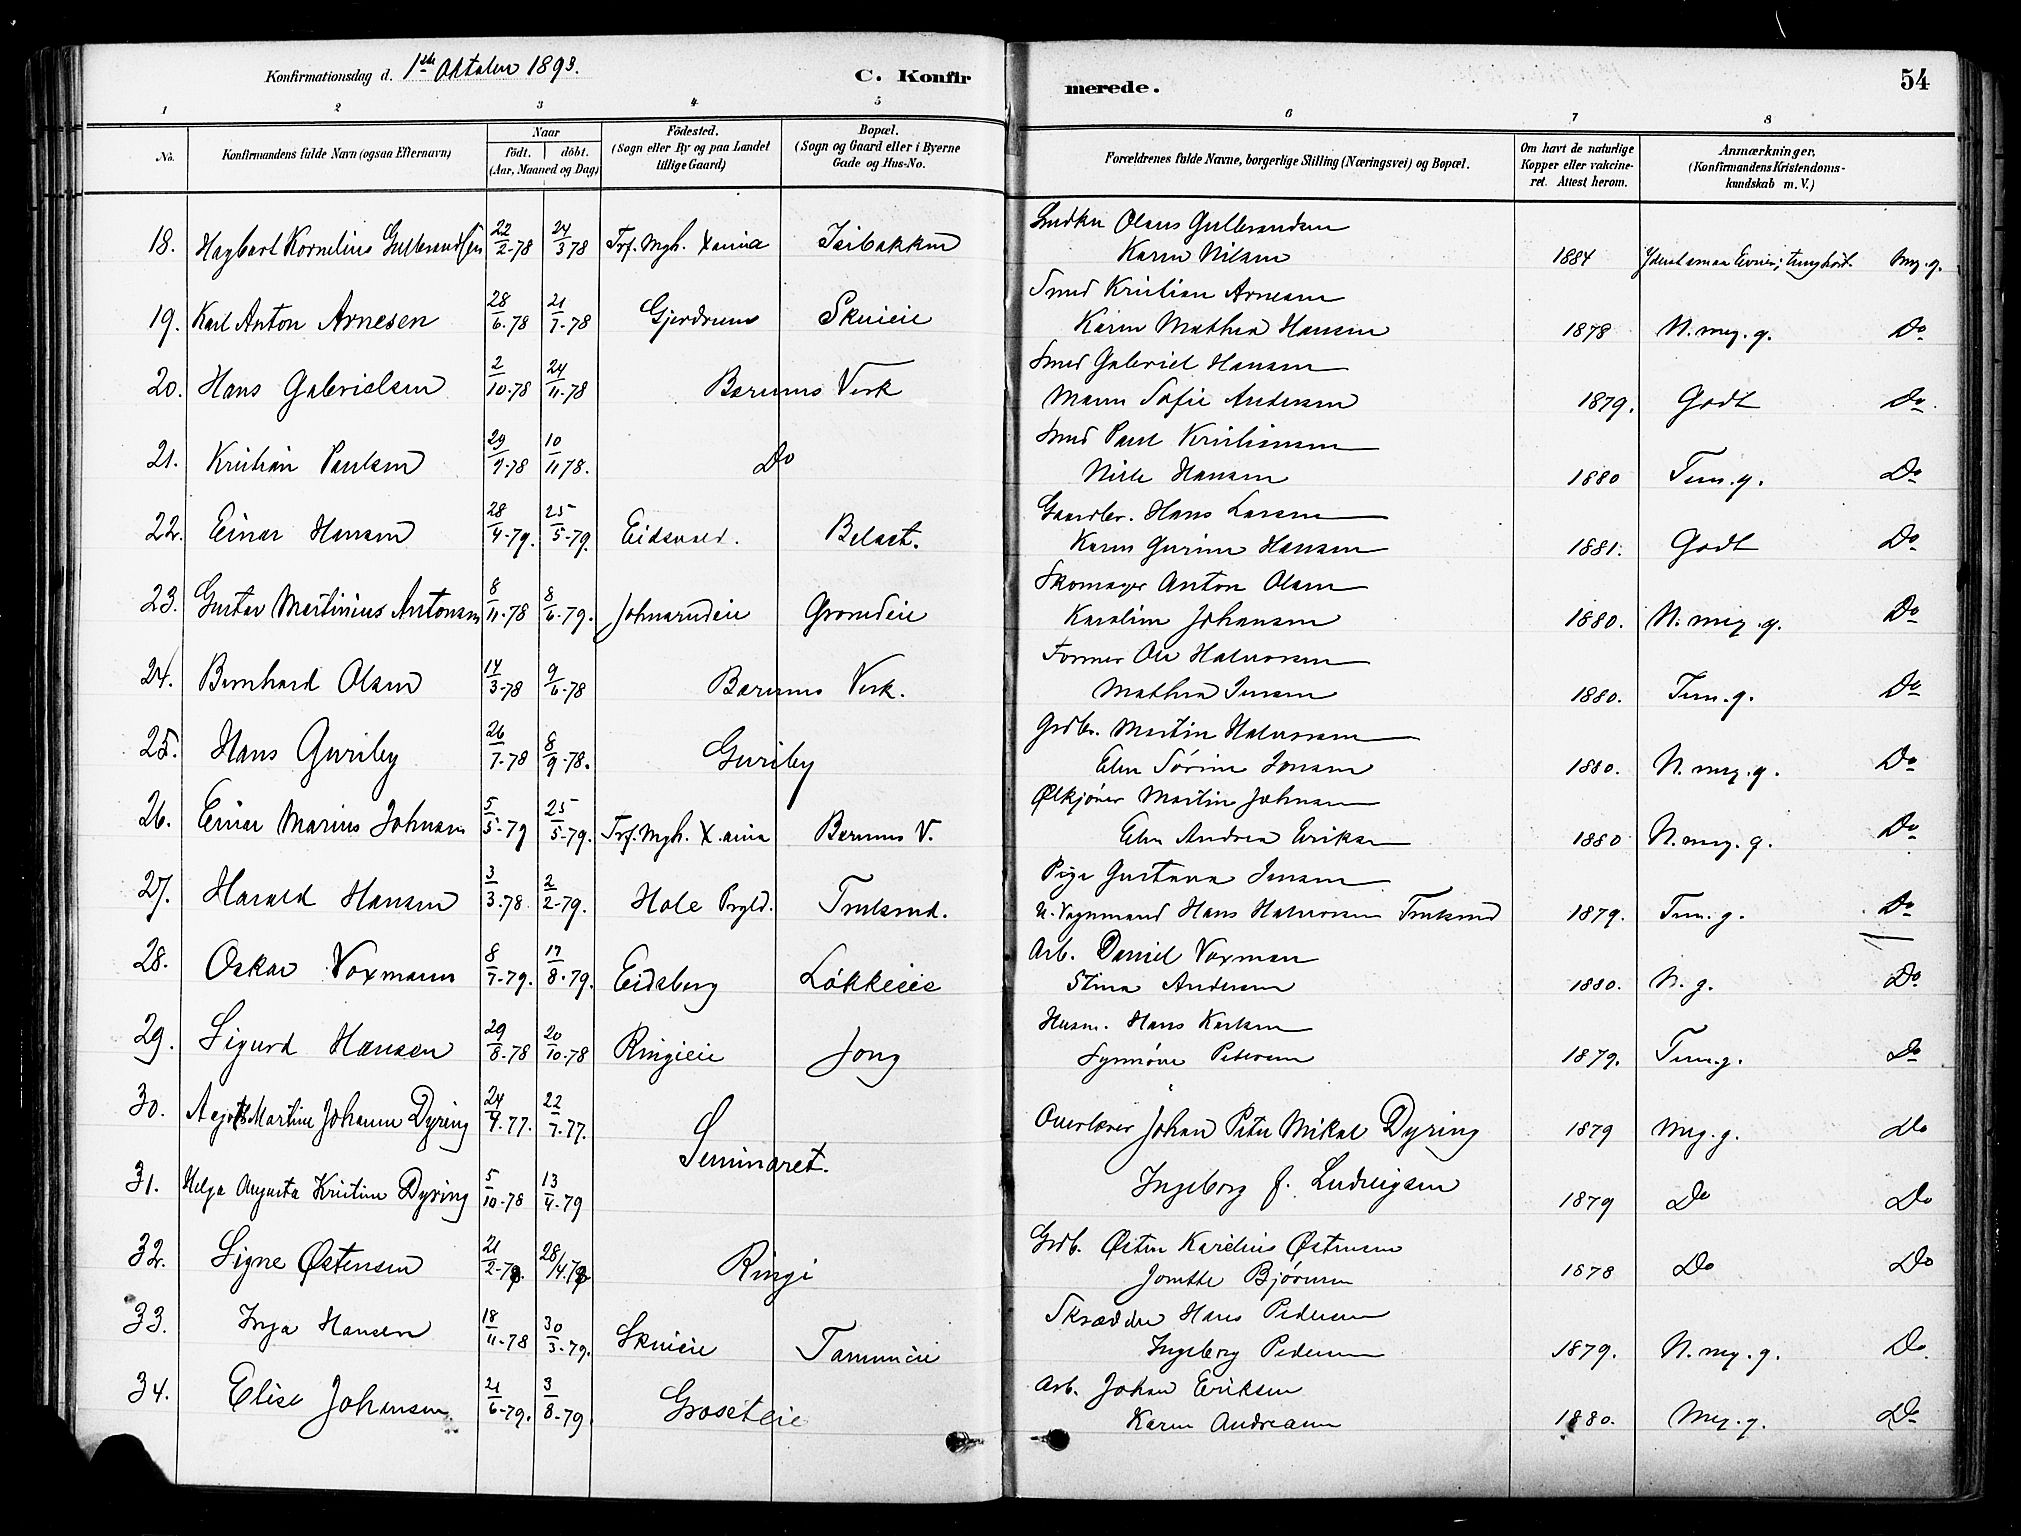 Konfirmationsdag d. 1ste Oktober 1893.
C. Konfirmerede.
54
1 2 3 4 5 6 7 8
No. Konfirmandens fulde Navn (ogsaa Efternavn) Naar födt. döbt. (Aar, Maaned og Dag) Födested. (Sogn eller By og paa Landet tillige Gaard) Bopæl. (Sogn og Gaard eller i Byerne Gade og Hus-No. Forældrenes fulde Navne, borgerlige Stilling (Næringsvei) og Bopæl. Om havt de naturlige Kopper eller vaccineret. Attest herom. Anmærkninger, (Konfirmandens Kristendomskundskab m. V.)
18. Hagbart Kornelius Gulbrandsen 22/2-78 24/3 78 Trf. Mgh. Xania Isibakken Olaus Gulbrandsen
Karen Nilsen 1884 tunghört. Mg. g.
19. Karl Anton Arnesen 28/6-78 21/7-78 Gjerdrum Skuieie Smed Kristian Arnesen
Karen Mathea Hansen 1878 N. meg. g. Do
20. Hans Gabrielsen 2/10-78 24/11-78 Bærums Verk Smed Gabriel Hansen
Maren Sofie Andersen 1879. Godt Do
21. Kristian Paulsen 29/9-78 10/11 78. Do Smed Paul Kristiansen
Hansen 1880 Tem. g. Do
22. Einar Hansen 28/4-79. 25/5-79. Eidsvold. Belset. Gaardbr. Hans Larsen
Karen Gurine Hansen 1881. Godt Do
23. Gustav Martinius Antonsen 8/11-78 8/6-79. Johnsrudeie Gromdeie Skomager Anton Olsen
Karoline Johansen 1880. N. meg. g. Do
24. Bernhard Olsen 14/3-78 9/6-78 Bærums Verk. Former Ole Halvorsen
Mathea Jensen 1880. Tem. g. Do
25. Hans Guriby 26/7-78 8/9-78. Guriby Grdbr. Martin Halvorsen
Elen Sörine Jonsen 1880. N. meg. g. Do
26. Einar Marius Johnsen 5/5-79 25/5-79. Trf. Mgh. X.ania Bærums V. Ølkjörer Martin Johnsen
Elen Andrea Eriksen 1880 N. meg. g. Do
27. Harald Hansen 3/3-78 2/2-79. Hole Prgld. Pige Gustava Jensen
U. Vognmand Hans Halvorsen 1879. Tem. g. Do
28. Oskar Voxmann 8/7-79. 17/8-79. Eidsberg Lökkeeie Arb. Daniel Voxman
Stina Andersen 1880. N. g. Do
29. Sigurd Hansen 29/8-78 20/10-78 Ringieie Jong Husm. Hans Karlsen
Synnöve Petersen 1879. Tem. g. Do
30. Martine Johanne Dyring 24/4-77. 22/7-77. Seminaret. Overlærer Johan Peter Mikal Dyring 1879 Meg. g. do
31. Helga Augusta Kristine Dyring 5/10-78 13/4-79 Ingeborg f. Ludvigsen 1879 Do Do
32. Signe Østensen 21/2-78. 28/4.78 Ringi Grdb. Østen Karelius Østensen
Jonette Bjørnsen 1878 Do Do
33. Inga Hansen 18/11-78 30/3-79. Skuieie Tanumeie Skrædder Hans Pedersen
Ingeborg Pedersen 1879. N. meg. g. Do
34. Elise Johansen 21/6-79. 3/8-79 Groseteie Arb. Johan Eriksen
Karen Andreasen 1880. Meg. g. Do